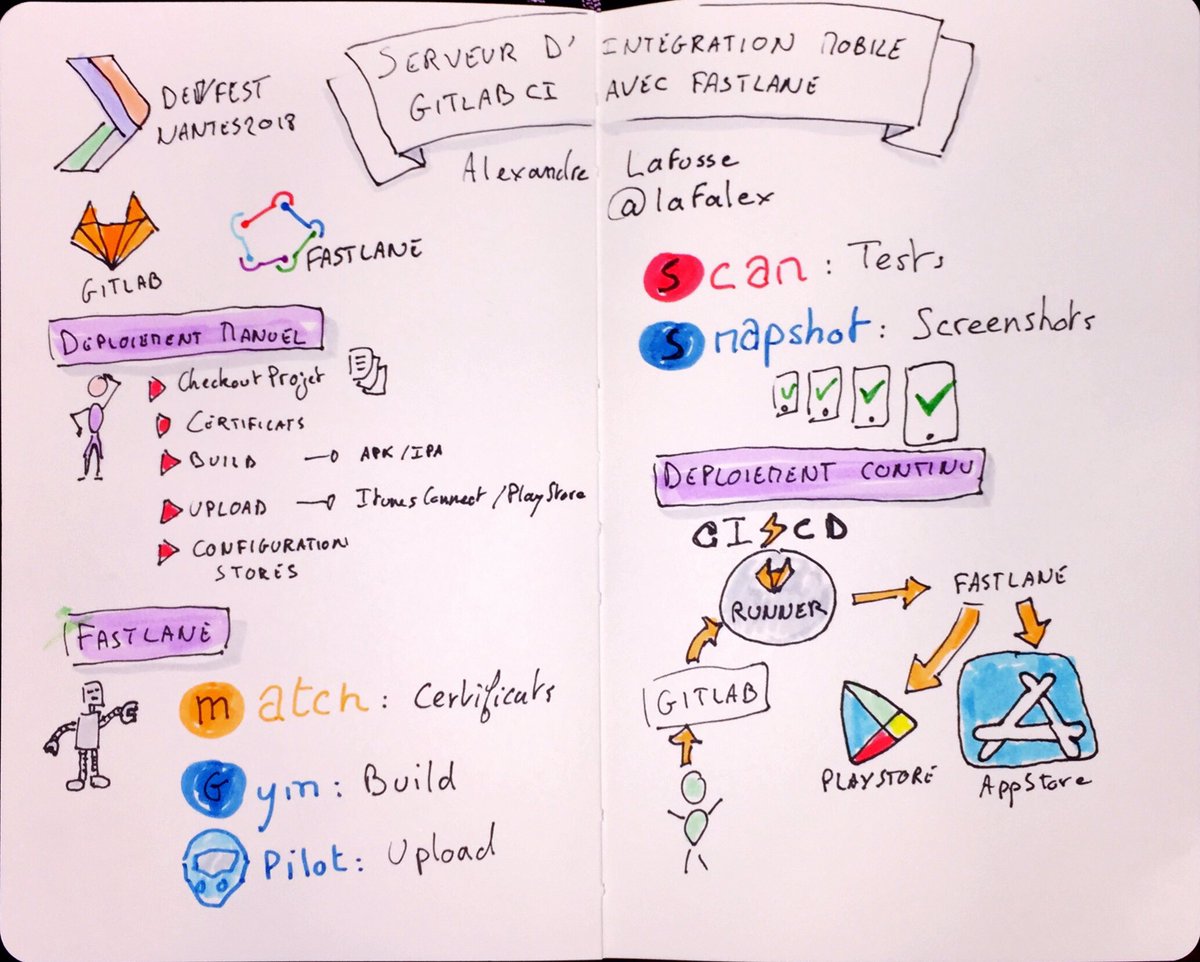 DEVFEST
NANTES2018
SERVEUR D'INTÉGRATION MOBILE
GITLAB CI AVEC FASTLANE
Alexandre Lafosse
@lafalex
GITLAB
FASTLANE
DÉPLOIEMENT MANUEL
Checkout Projet
CERTIFICATS
BUILD → APK/IPA
UPLOAD → Itunes Connect / PlayStore
CONFIGURATION
STORES
FASTLANE
match : Certificats
Gym : Build
Pilot : Upload
Scan : Tests
Snapshot : Screenshots
DÉPLOIEMENT CONTINU
CI⚡CD
RUNNER
FASTLANE
GITLAB
PLAYSTORE
AppStore